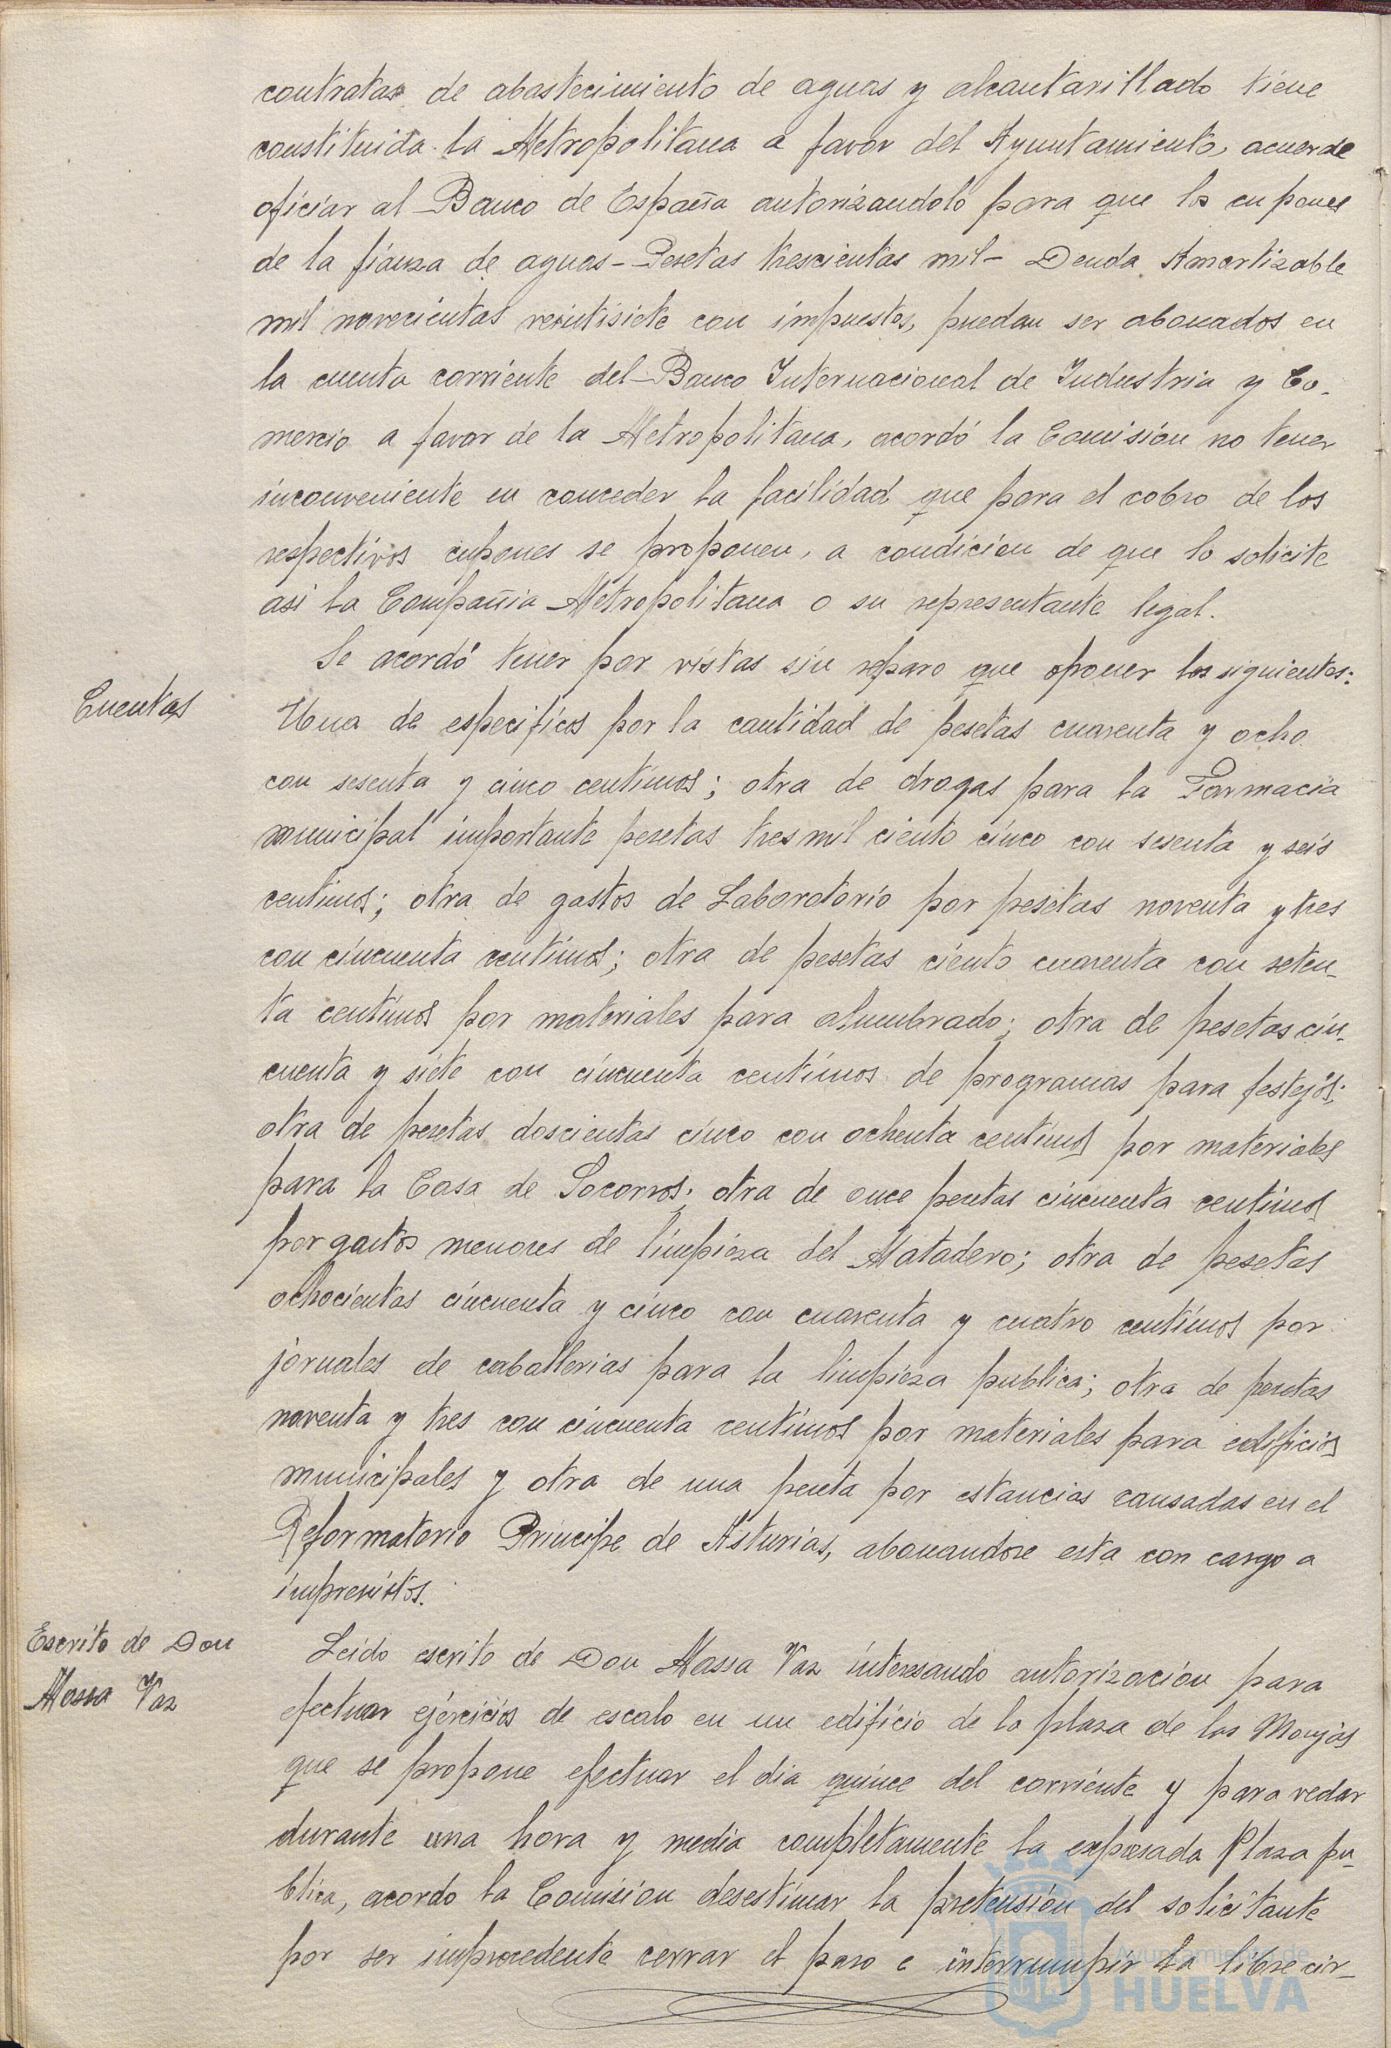 contratas de abastecimiento de aguas y alcantarillado tiene
constituida la Metropolitana a favor del Ayuntamiento, acuerde
oficiar al Banco de España autorizandolo para que los cupones
de la fianza de aguas - Pesetas trescientas mil - Deuda Amortizable
mil novecientas veintisiete con impuestos, puedan ser abonados en
la cuenta corriente del Banco Internacional de Industria y Co-
mercio a favor de la Metropolitana, acordó la Comisión no tener
inconveniente en conceder la facilidad que para el cobro de los
respectivos cupones se proponen, a condicion de que lo solicite
asi la Compañia Metropolitana o su representante legal.
Se acordó tener por vistas sin reparo que oponer las siguientes:
Cuentas
Una de especificos por la cantidad de pesetas cuarenta y ocho
con sesenta y cinco centimos; otra de drogas para la Farmacia
municipal importante pesetas tres mil ciento cinco con sesenta y seis
centimos; otra de gastos de Laboratorio por pesetas noventa y tres
con cincuenta centimos; otra de pesetas ciento cuarenta con seten-
ta centimos por materiales para alumbrado; otra de pesetas cin-
cuenta y siete con cincuenta centimos de programas para festejos;
otra de pesetas doscientas cinco con ochenta centimos por materiales
para la Casa de Socorros; otra de once pesetas cincuenta centimos
por gastos menores de limpieza del Matadero; otra de pesetas
ochocientas cincuenta y cinco con cuarenta y cuatro centimos por
jornales de caballerias para la limpieza publica; otra de pesetas
noventa y tres con cincuenta centimos por materiales para edificios
municipales y otra de una peseta por estancias causadas en el
Reformatorio Principe de Asturias, abonandose esta con cargo a
imprevistos.
Escrito de Don
Massa Vaz
Leido escrito de Don Massa Vaz interesando autorización para
efectuar ejercicios de escalo en un edificio de la plaza de las Monjas
que se propone efectuar el dia quince del corriente y para vedar
durante una hora y media completamente la expresada Plaza pu-
blica, acordo la Comision desestimar la pretensión del solicitante
por ser improcedente cerrar el paso e interrumpir la libre cir-
Ayuntamiento de
HUELVA